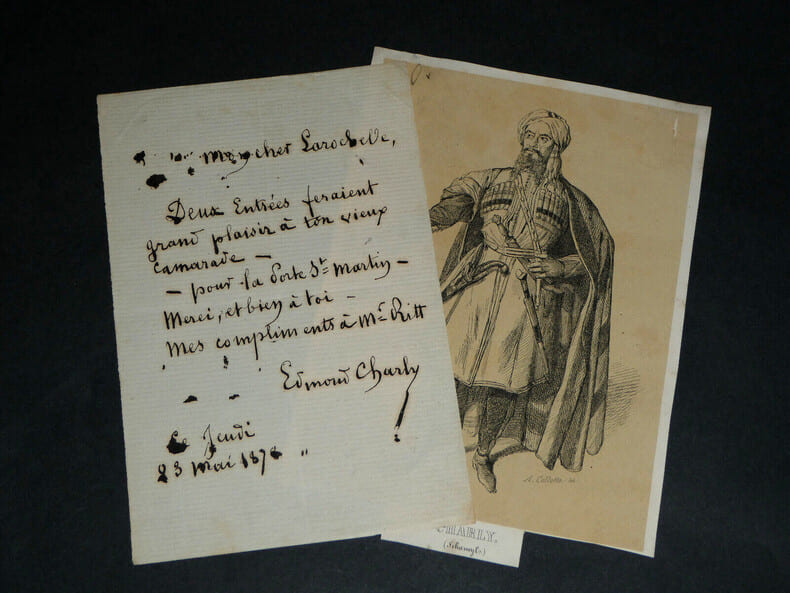 Mon cher Larochelle,
Deux Entrées feraient
grand plaisir à ton vieux
camarade –
– pour la Porte St Martin –
Merci, et bien à toi –
Mes compliments à Mr. Ritt
Edmond Charly
Le Jeudi
23 Mai 1878 „
A. Collette
CHARLY.
(Schamyl.)